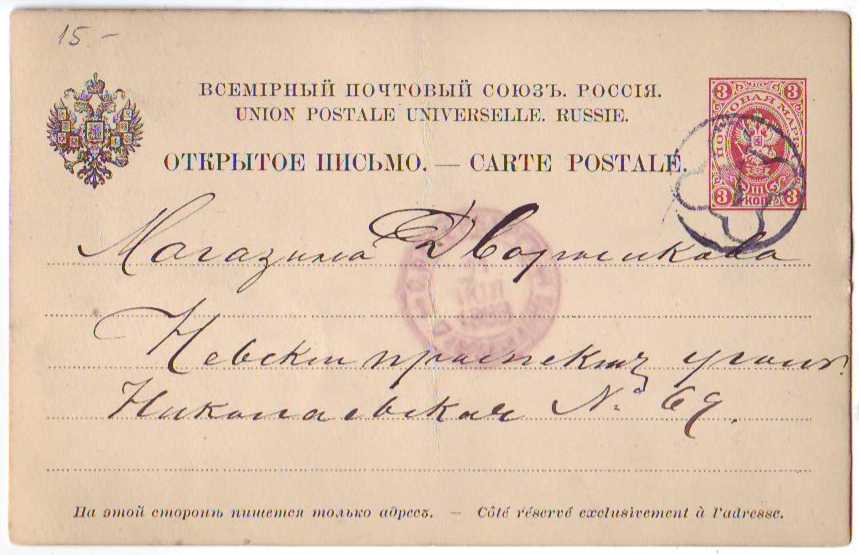 15.-
ВСЕМІРНЫЙ ПОЧТОВЫЙ СОЮЗЪ. РОССІЯ.
UNION POSTALE UNIVERSELLE. RUSSIE.
ОТКРЫТОЕ ПИСЬМО. — CARTE POSTALE.
3 3
ПОЧТОВАЯ МАРКА
3 III КОП. 3
Магазина Дворникова
Невскій проспектъ уголъ
Николаевская № 69.
На этой сторонѣ пишется только адресъ. — Côté réservé exclusivement à l'adresse.